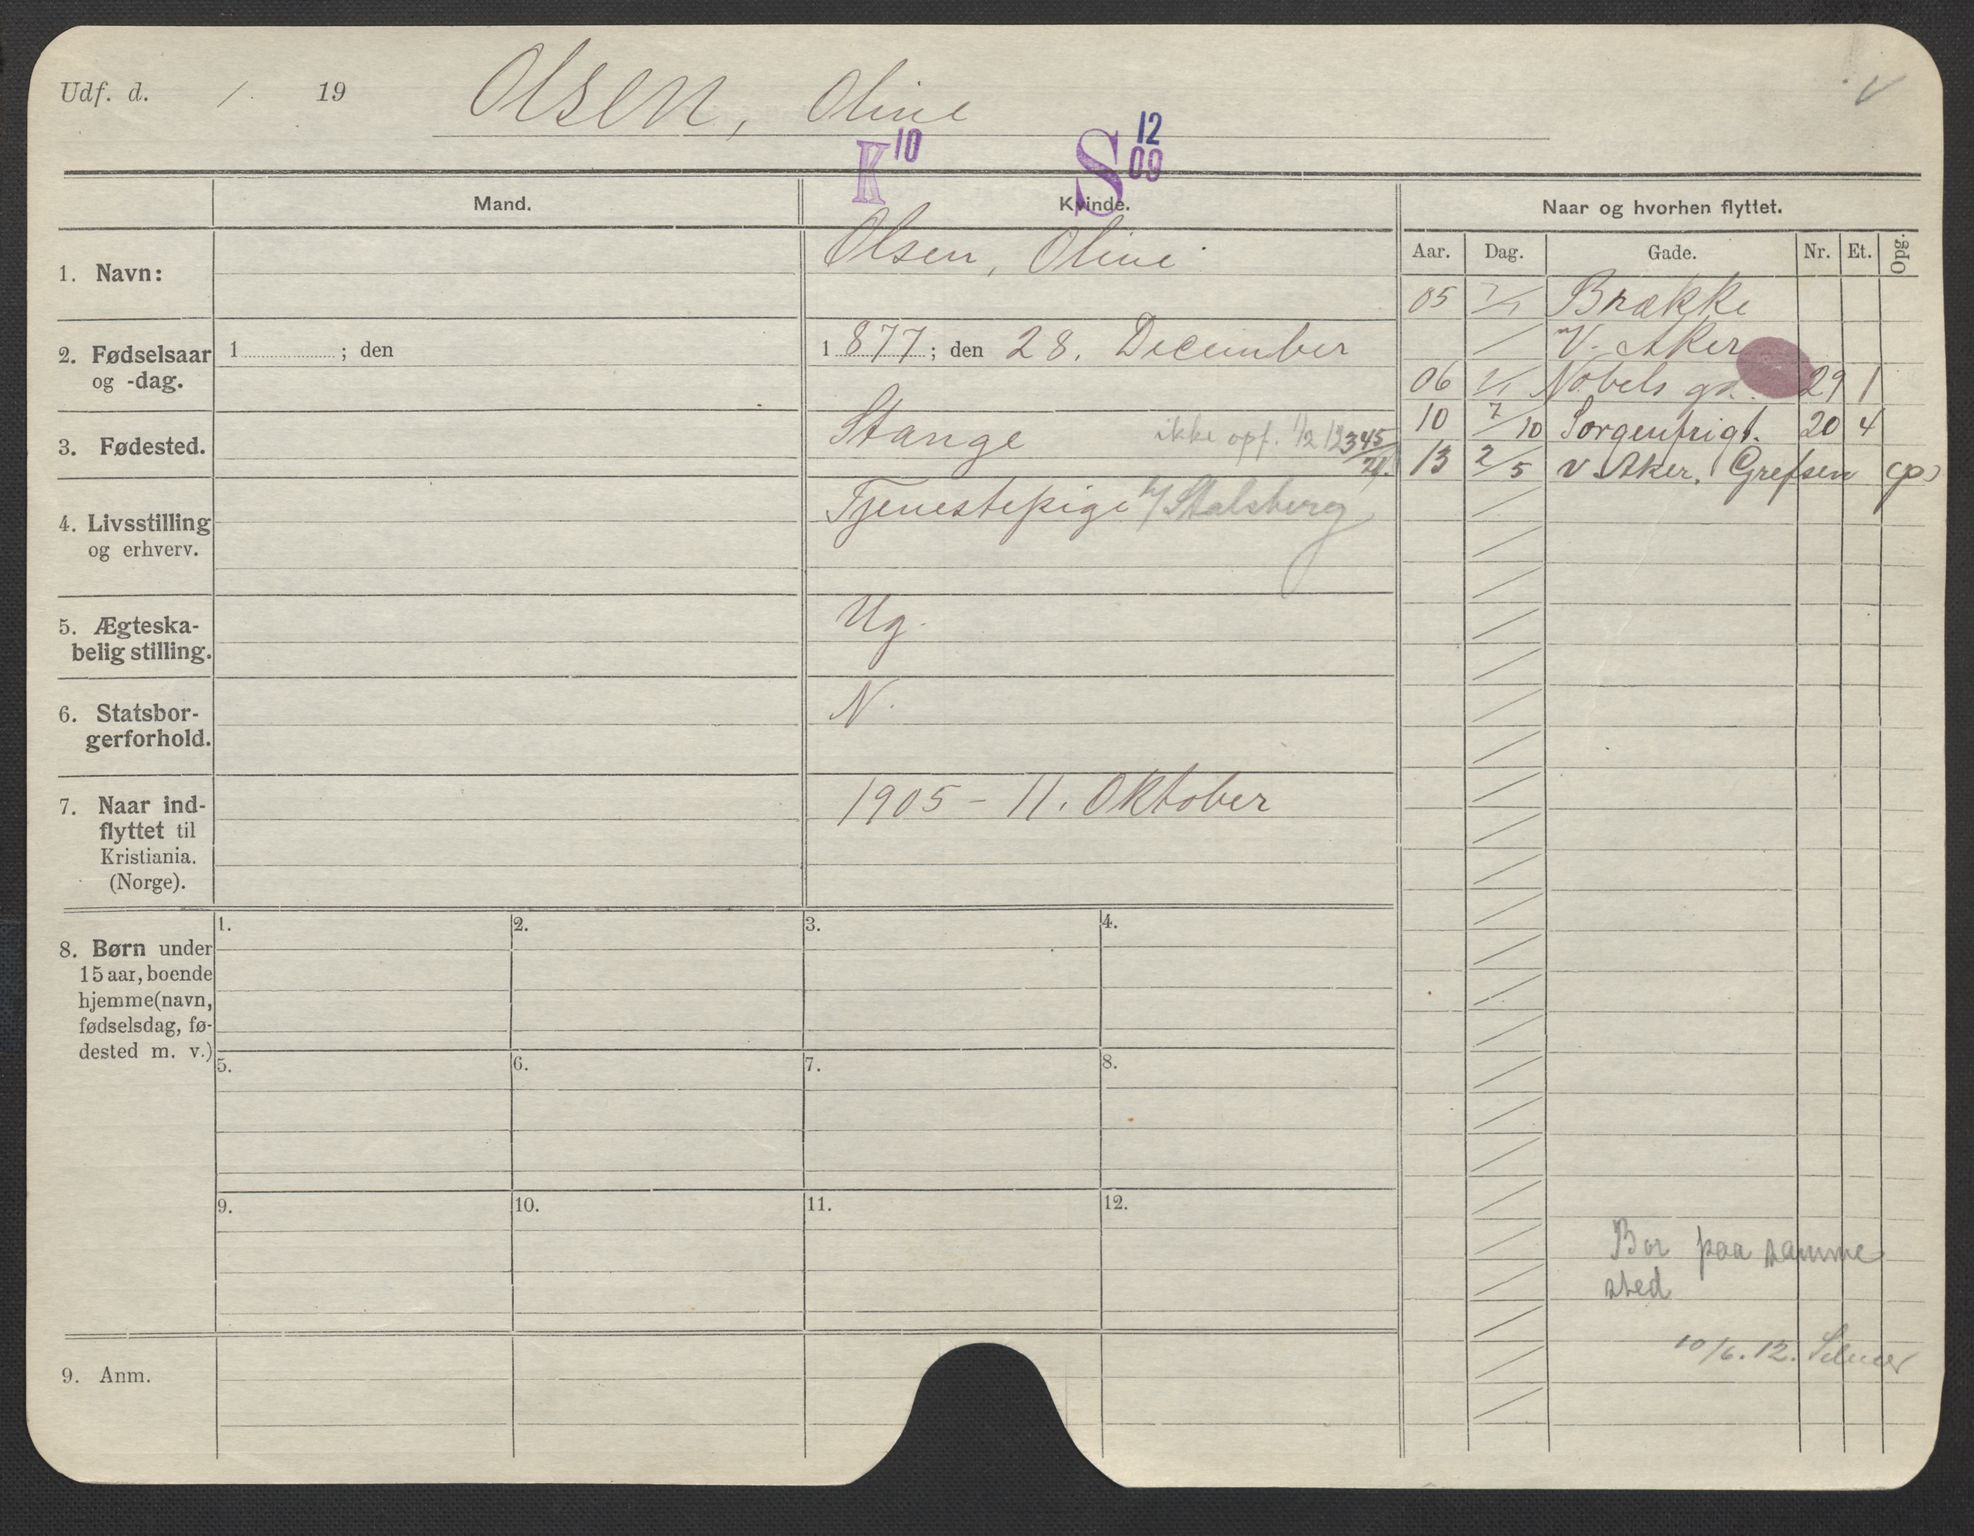 Udf. d. / 19 Olsen, Oline
K 10 S 12 09
Mand. Kvinde. Naar og hvorhen flyttet.
Aar. Dag. Gade. Nr. Et. Opg.
1. Navn: Olsen, Oline
2. Fødselsaar og -dag. 1 ; den 1877; den 28. December
3. Fødested. Stange ikke opf. 1/2 12345/21.
4. Livsstilling og erhverv. Tjenestepige h/ Stalsberg
5. Ægteska-
belig stilling. Ug.
6. Statsbor-
gerforhold. N.
7. Naar ind-
flyttet til
Kristiania.
(Norge). 1905 - 11. Oktober
8. Børn under
15 aar, boende
hjemme (navn,
fødselsdag, fø-
dested m. v.)
1. 2. 3. 4.
5. 6. 7. 8.
9. 10. 11. 12.
9. Anm.
05 Brække
V. Aker
06 Nobels gd. 29 1
10 7/10 Sorgenfrigt. 20 4
13 2/5 V Aker, Grefsen (p)
Bor paa samme
sted
10/6. 12.